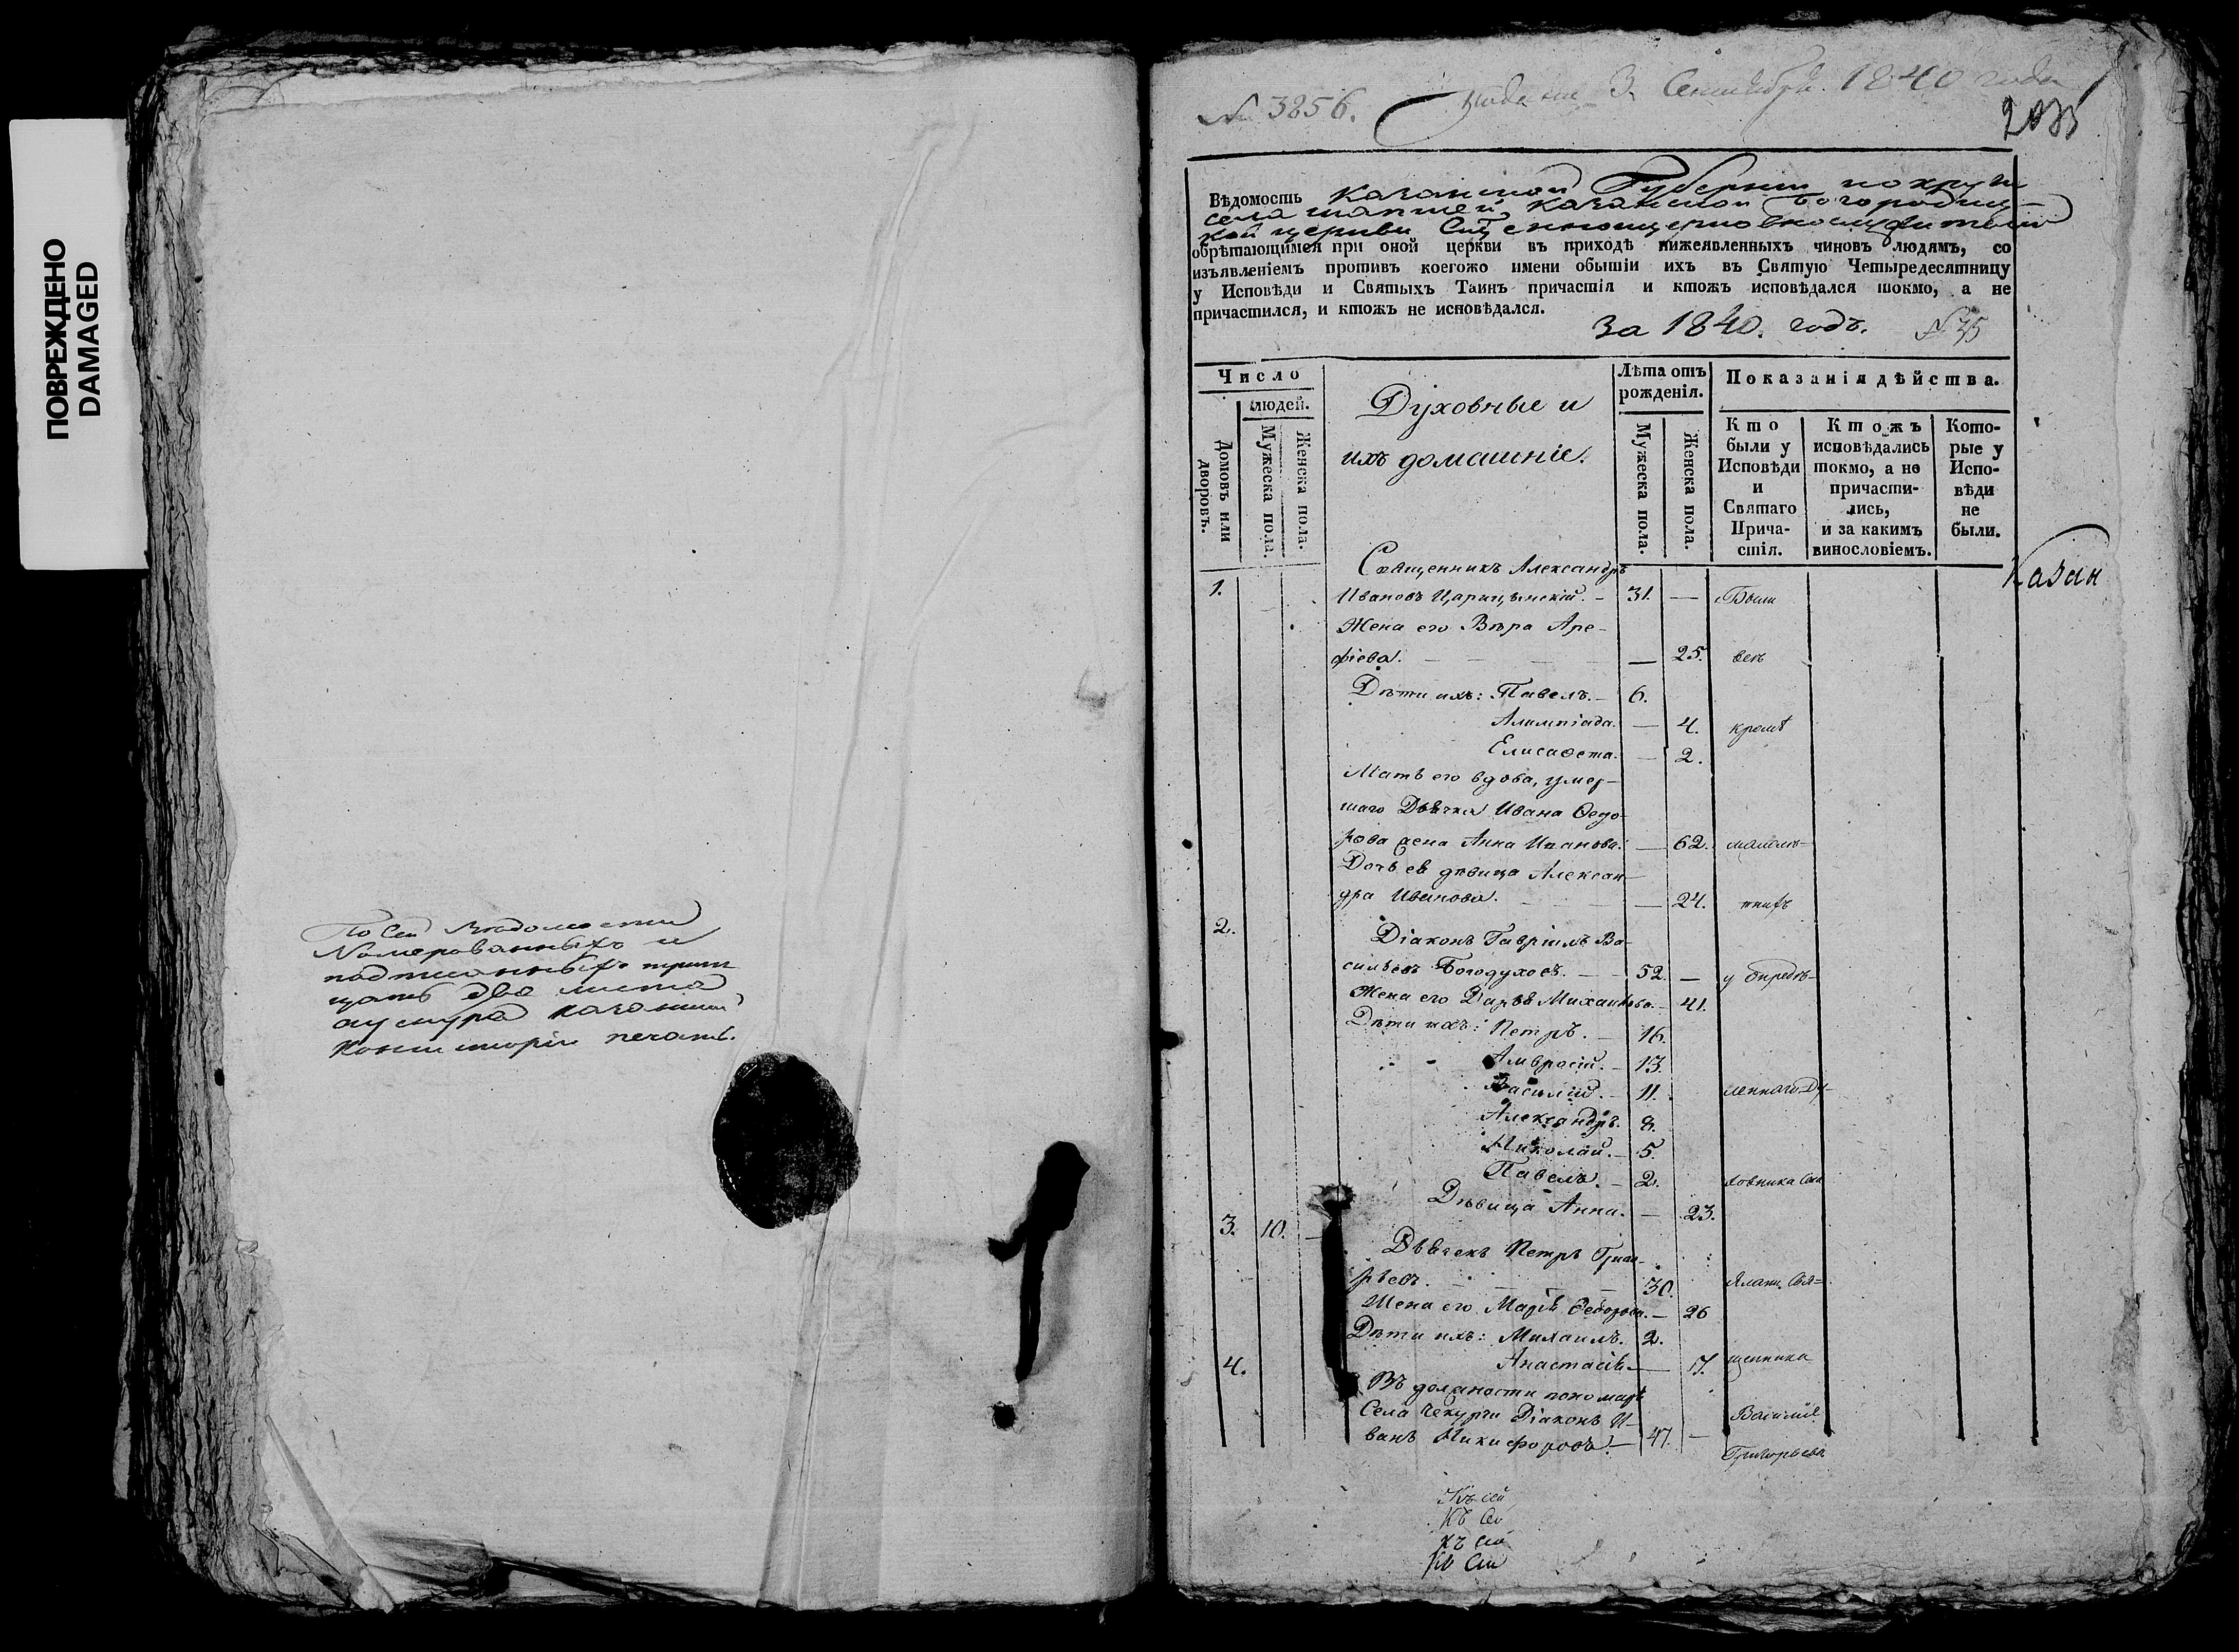 ПОВРЕЖДЕНО
DAMAGED
По Сей Вѣдомости
Nомерованныхъ и
два листа
печать.
№ 3856. 3. Сентября. 1840 года
Вѣдомость Казанской Губерніи
села Казанской Богородиц-
кой церкви
обрѣтающимся при оной церкви въ приходѣ нижеявленныхъ чиновъ людямъ, со
изъявленіемъ противъ коегожо имени обышіи ихъ въ Святую Четыредесятницу
у Исповѣди и Святыхъ Таинъ причастія и ктожъ исповѣдался токмо, а не
причастился, и ктожъ не исповѣдался.
За 1840. годъ. №35
Число
людей.
Домовъ или дворовъ.
Мужеска пола.
Женска пола.
Духовные и
ихъ домашніе.
Лѣта отъ
рожденія.
Мужеска пола.
Женска пола.
Показанія дѣйства.
Кто
были у
Исповѣди
и
Святаго
Прича-
стія.
Ктожъ
исповѣдались
токмо, а не
причасти-
лись,
и за какимъ
винословіемъ.
Кото-
рые у
Испо-
вѣди
не
были.
Казан
Священникъ Александръ
1. Ивановъ Царицынскій. — 31. — Были
Жена его Вѣра Аре-
фіева. — — 25. всѣ
Дѣти ихъ: Павелъ. — 6.
Алимпіада. — 4. кромѣ
Елисавета. — 2.
Мать его вдова, умер-
шаго Дьячка Ивана Ѳедо-
рова жена Анна Иванова. — 62. малолѣ-
Дочь ея дѣвица Алексан-
дра Иванова. — — 24. тнихъ
2. Діаконъ Гавріилъ Ва-
сильевъ Богодуховъ. — 52. — у опредѣ-
Жена его Дарья Михайлова. — 41.
Дѣти ихъ: Петръ. — 16.
Амвросій. — 13.
Василій. — 11. леннаго Ду-
Александръ. 8.
Николай. — 5.
Павелъ. — 2. ховника Села
Дѣвица Анна. — 23.
3. 10. —
Дьячекъ Петръ Григо-
рьевъ. — 30. Свя-
Жена его Марія Ѳедорова. — 26
Дѣти ихъ: Михаилъ. 2.
4. Анастасія. — щенника
Въ должности пономаря
Села Чекурчи Діаконъ И- Василія
ванъ Никифоровъ. — 47. —
Григорьева
Къ сей
Къ Се
Къ Сей
Къ Сей